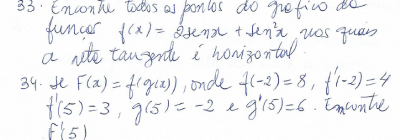 33. Encontre todos os pontos do gráfico da
função f(x) = 2senx + sen²x nos quais
a reta tangente é horizontal.
34. Se F(x) = f(g(x)), onde f(-2) = 8, f'(-2) = 4
f'(5) = 3, g(5) = -2 e g'(5) = 6. Encontre
F'(5)